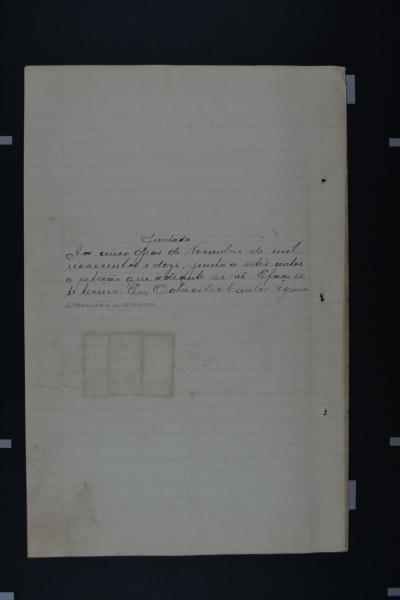 Juntada
Aos cinco dias de Novembro de mil
novecentos e doze, junto a estes autos
a petição que adeante se vê. E faço es
te termo. Eu, Carlos
escrivão escrevi